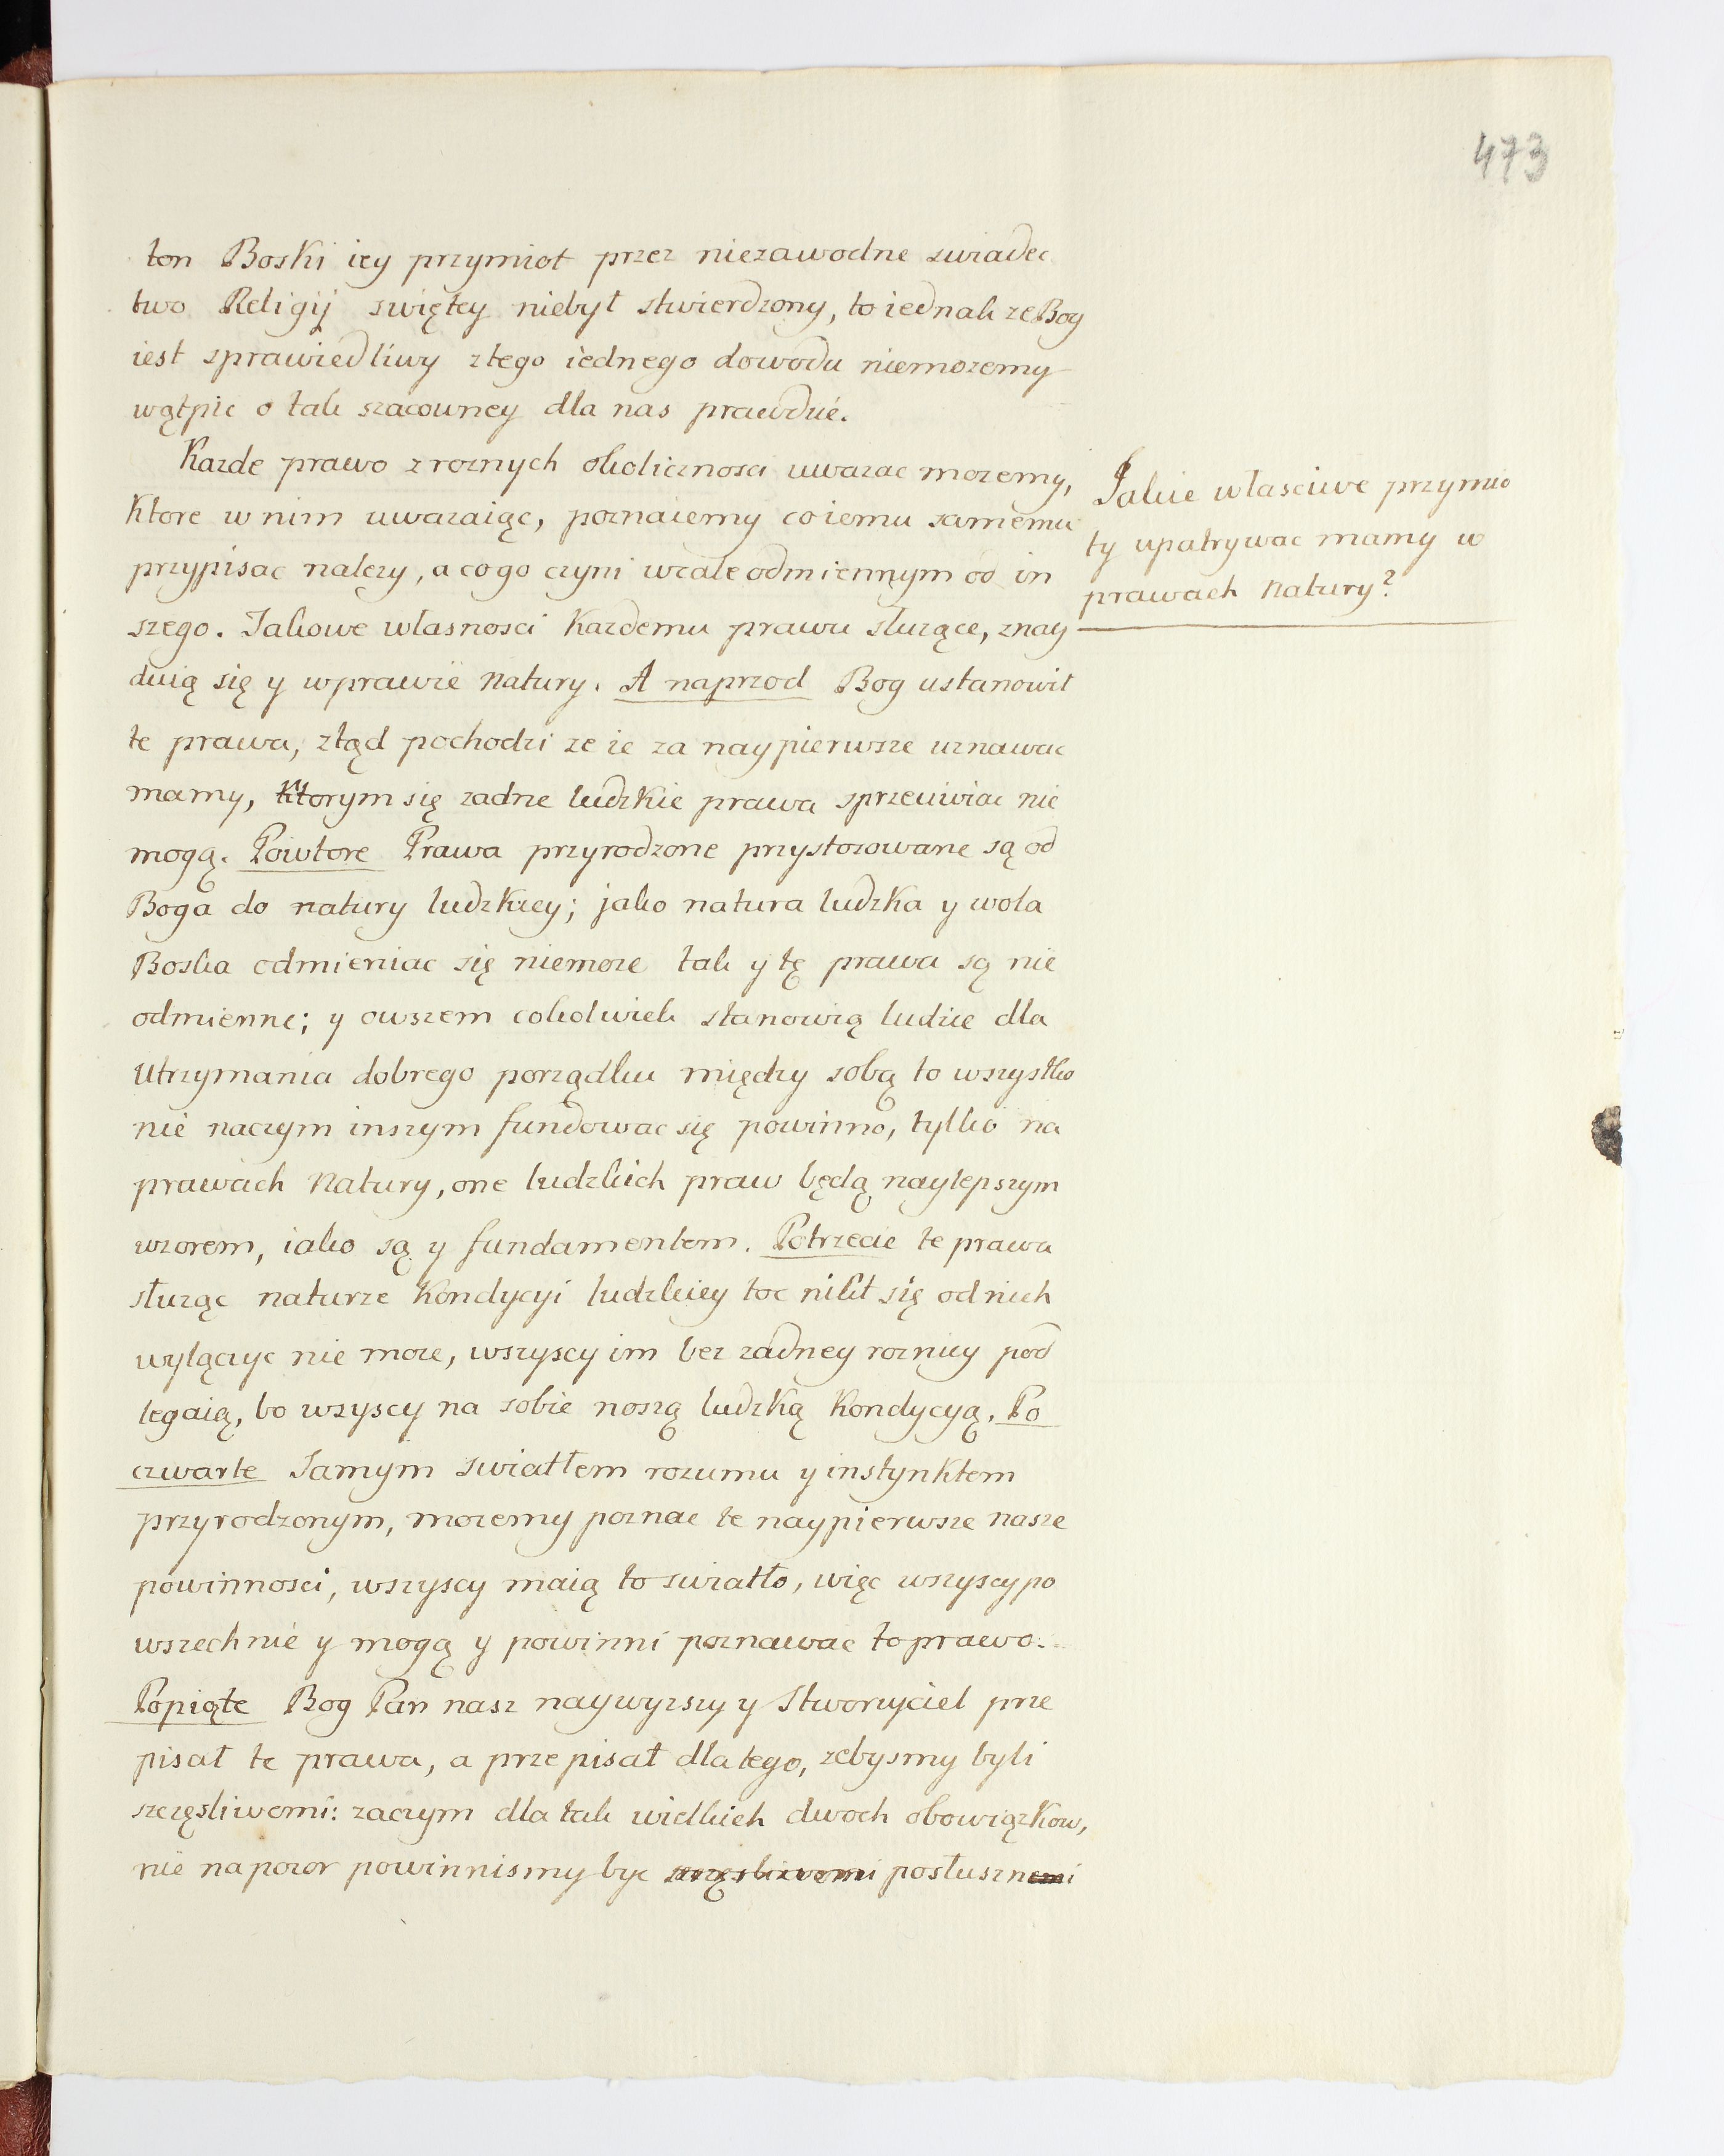 473
ten Boski iey przymiot przez niezawodne swiadec
two Religij swiętey niebył stwierdzony, to iednak ze Bog
iest sprawiedliwy z tego iednego dowodu niemozemy
wątpic o tak szacowney dla nas prawdzie.
Kazde prawo z roznych okolicznosci uwazac mozemy,
Ktore w nim uwazaiąc, poznaiemy co iemu samemu
przypisac nalezy, a co go czyni wcale odmiennym od in
szego. Jakowe własnosci Kazdemu prawu słuzące, znay
duią się y w prawie Natury. A naprzod Bog ustanowił
te prawa, ztąd pochodzi ze ie za naypierwsze uznawac
mamy, Ktorym się zadne ludzkie prawa sprzeciwiac nie
mogą. Powtore Prawa przyrodzone przystosowane są od
Boga do natury ludzkiey; jako natura ludzka y wola
Boska odmieniac się niemoze tak y tę prawa są nie
odmienne; y owszem cokolwiek stanowią ludzie dla
Utrzymania dobrego porządku między sobą to wszystko
nie naczym inszym fundowac się powinno, tylko na
prawach Natury, one ludzkich praw będą naylepszym
wzorem, iako są y fundamentem. Potrzecie te prawa
słuząc naturze Kondycyi ludzkiey toc nikt się od nich
wyłączyc nie moze, wszyscy im bez zadney roznicy pod
legaią, bo wszyscy na sobie noszą ludzką Kondycyą. Po
czwarte Samym swiatłem rozumu y instynktem
przyrodzonym, mozemy poznac te naypierwsze nasze
powinnosci, wszyscy maią to swiatło, więc wszyscy po
wszechnie y mogą y powinni poznawac to prawo.
Popiąte Bog Pan nasz naywyzszy y Stworzyciel prze
pisał te prawa, a przepisał dla tego, zebysmy byli
szczęsliwemi: zaczym dla tak wielkich dwoch obowiązkow,
nie na pozor powinnismy byc szczęsliwemi posłusznemi
Jakie własciwe przymio
ty upatrywac mamy w
prawach Natury?